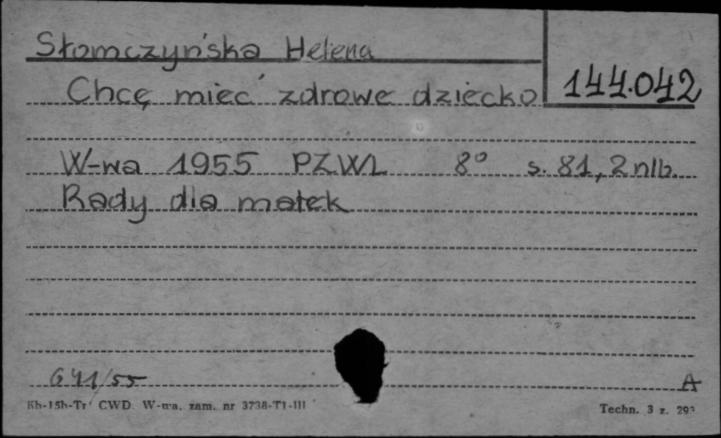 Słomczyńska Helena
144.042
Chcę mieć zdrowe dziecko
W-wa 1955 PZWL 8° s. 81, 2 nlb.
Rady dla matek
641/55
A
Kh-15h-Tr CWD. W-wa. zam. nr 3738-T1-III
Techn. 3 z. 293